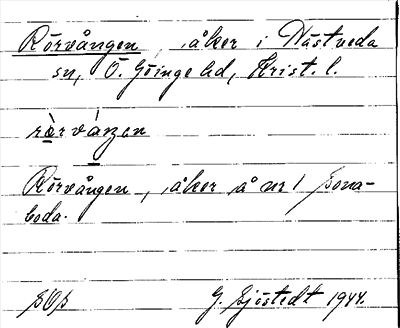 Rörvången, åker i Nästveda
sn, Ö. Göinge hd, Krist. l.
rörvánȝen
Rörvången, åker å nr 1 Sona-
boda.
SOS
G. Sjöstedt 1944.